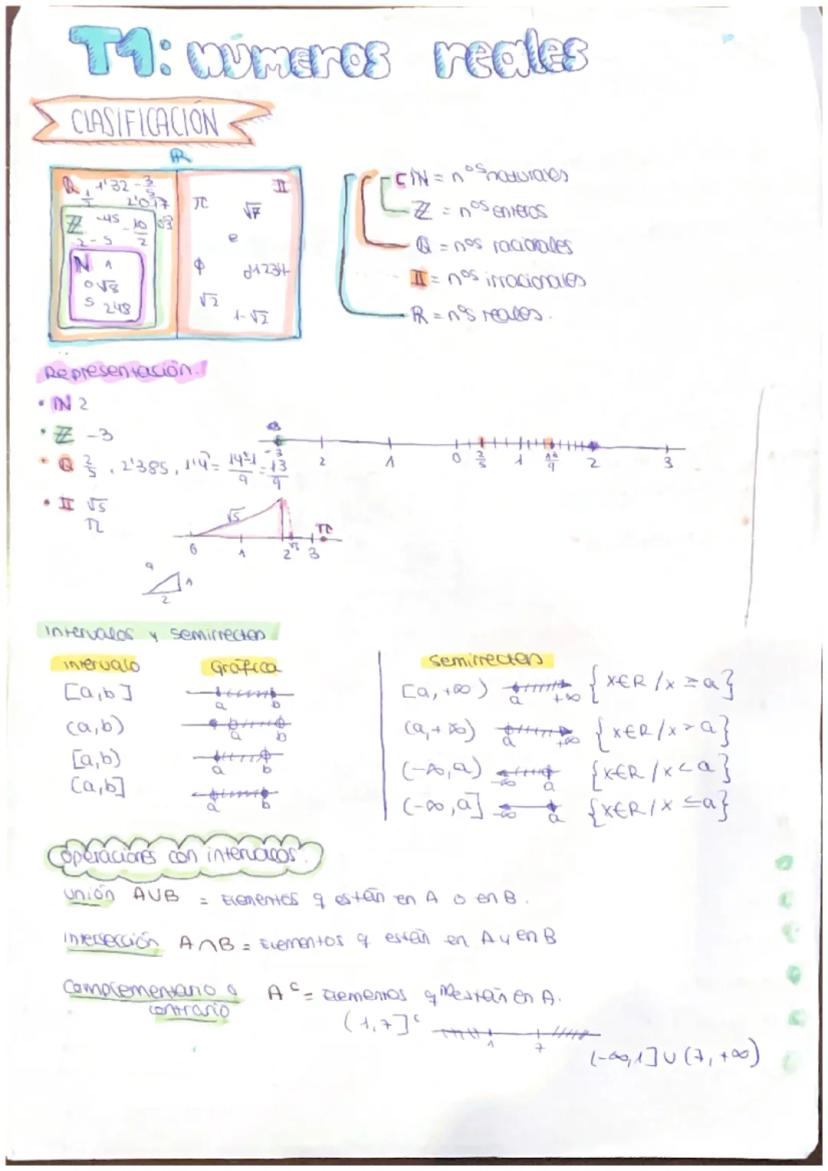 T1: números reales
CLASIFICACIÓN
R
Q 1'32 - 3/3
Z -45 -10/2
2 -5
N 1
0 √8
5 248
II
π √7
e
ϕ 01234
√2
1-√2
N = nos naturales
Z = nos enteros
Q = nos racionales
II = nos irracionales
R = nos reales.
Representación.
• N 2
• Z -3
• Q 2/3, 2'385, 1'4 = 14-1/9 = 13/9
-3 2 1 0 2/3 1 13/9 2 3
• II √5
π
√5
π
0 1 2 √5 3
1
2
intervalos y semirrectas
intervalo Gráfica
[a,b] a b
(a,b) a b
[a,b) a b
(a,b] a b
semirrectas
[a, +∞) a +∞ {x∈R / x ≥ a}
(a, +∞) a +∞ {x∈R / x > a}
(-∞, a) -∞ a {x∈R / x < a}
(-∞, a] -∞ a {x∈R / x ≤ a}
operaciones con intervalos.
unión A∪B = Elementos q están en A o en B.
intersección A∩B = Elementos q están en A y en B
complementario o
contrario
A^c = Elementos q no están en A.
(1,7]^c 1 7
(-∞,1] ∪ (7, +∞)